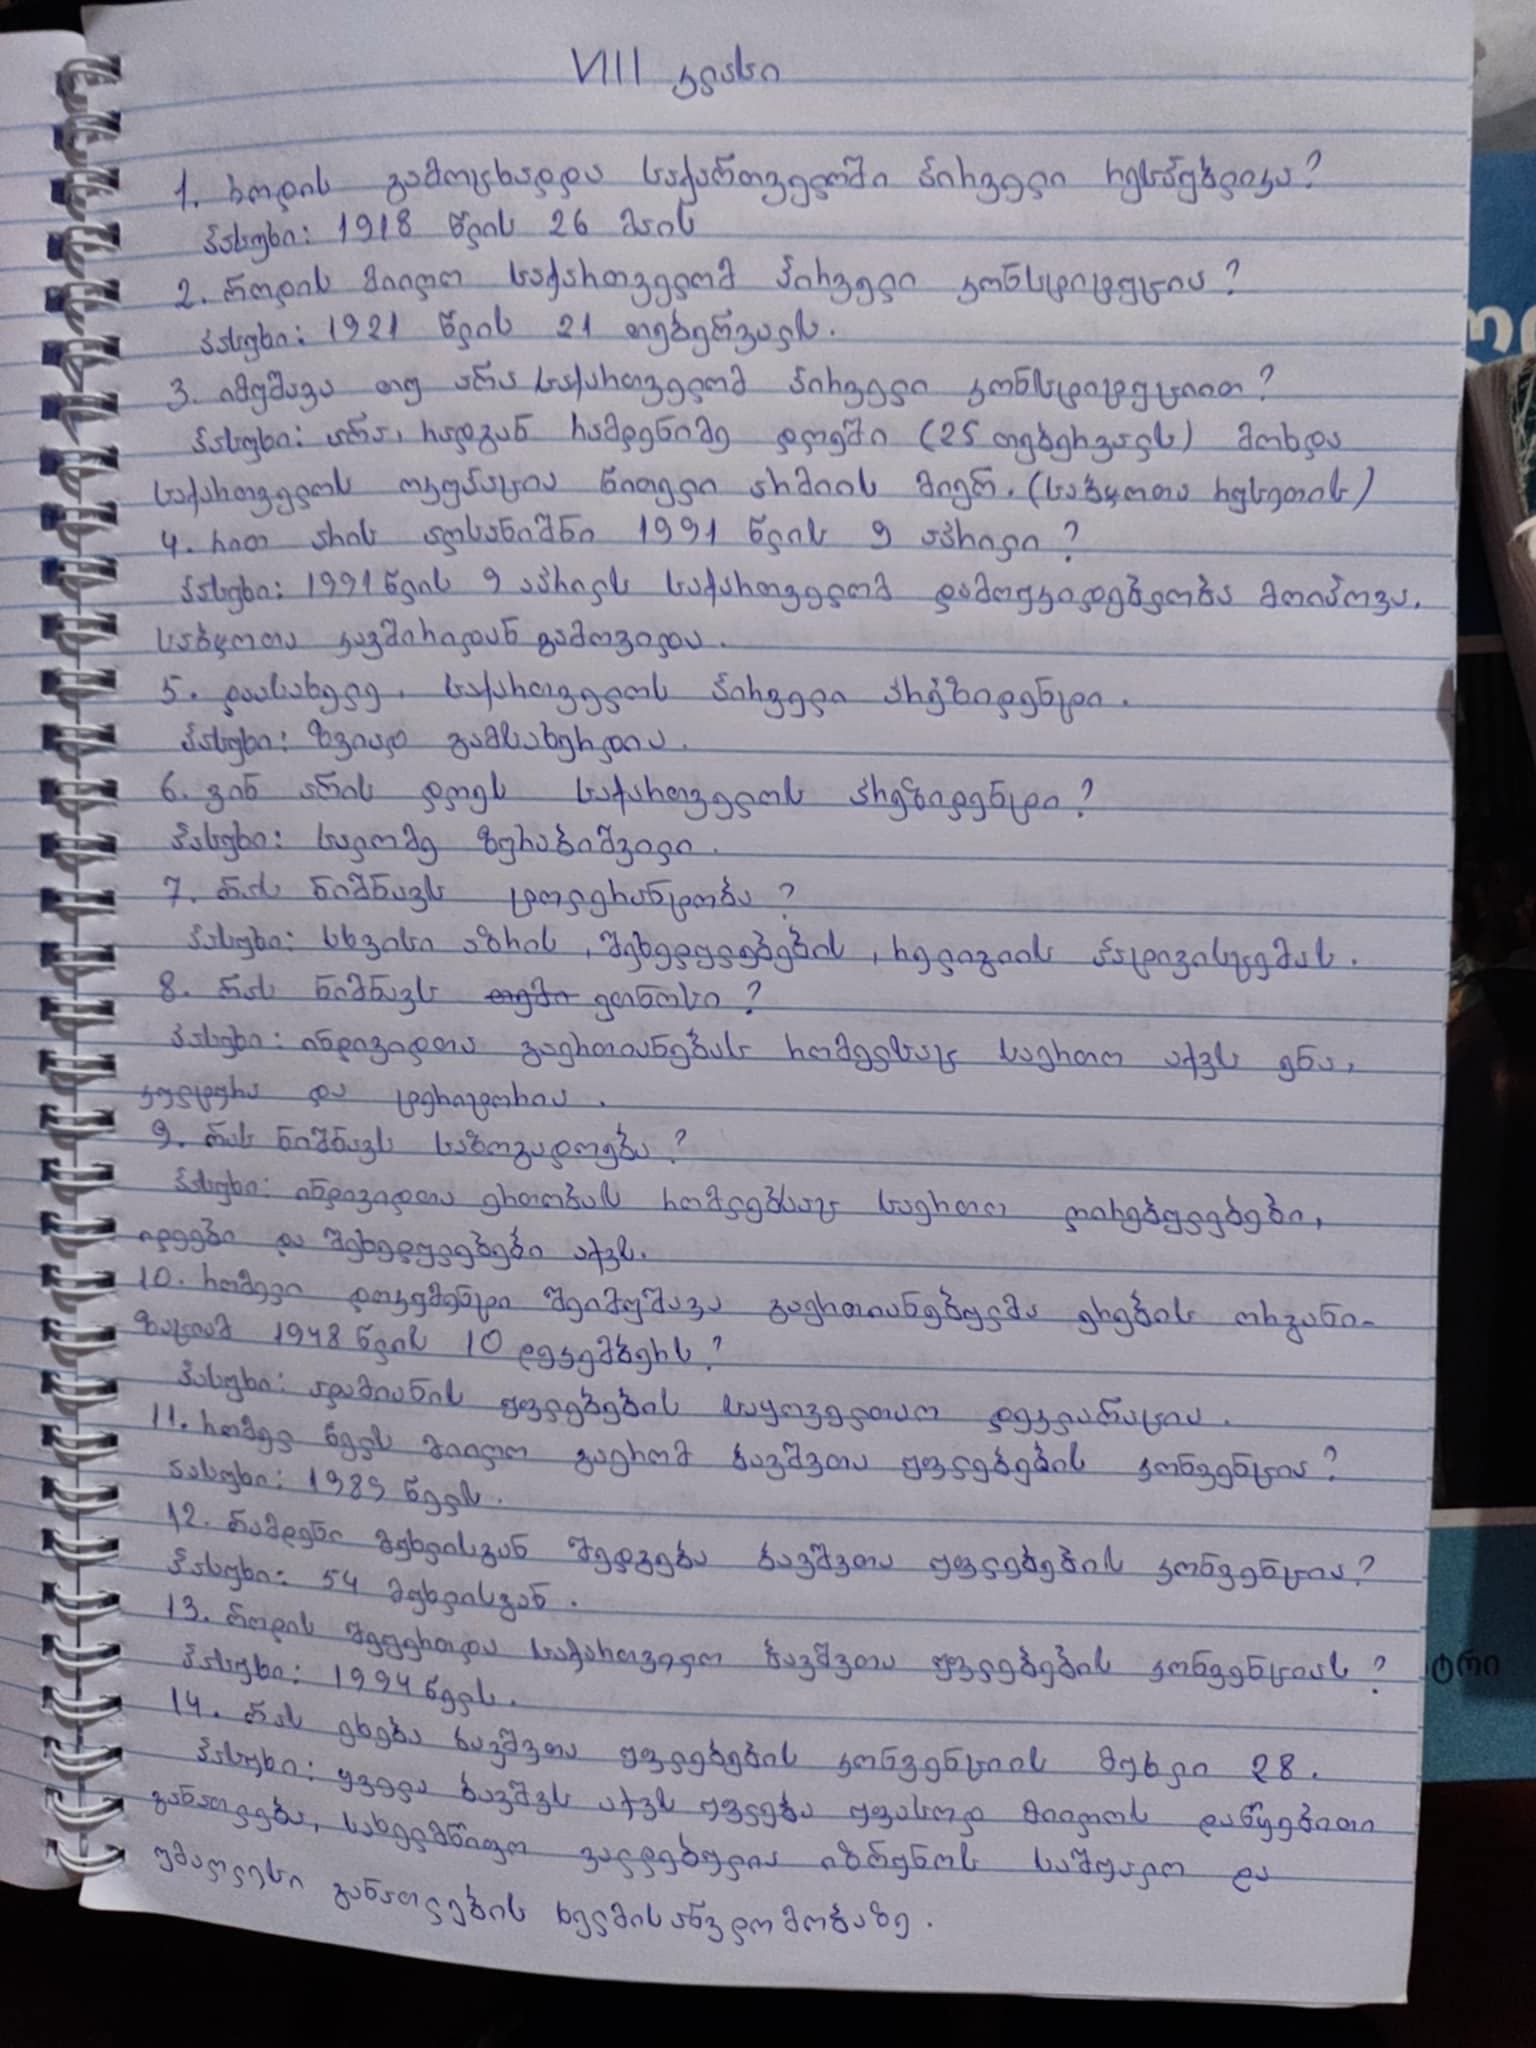 VIII კლასი
1. როდის გამოცხადდა საქართველოში პირველი რესპუბლიკა?
პასუხი: 1918 წლის 26 მაის
2. როდის მიიღო საქართველომ პირველი კონსტიტუცია?
პასუხი: 1921 წლის 21 თებერვალს.
3. იმუშავა თუ არა საქართველომ პირველი კონსტიტუციით?
პასუხი: არა, რადგან რამდენიმე დღეში (25 თებერვალს) მოხდა
საქართველოს ოკუპაცია წითელი არმიის მიერ. (საბჭოთა რუსეთის)
4. რით არის აღსანიშნი 1991 წლის 9 აპრილი?
პასუხი: 1991 წლის 9 აპრილს საქართველომ დამოუკიდებლობა მოიპოვა.
საბჭოთა კავშირიდან გამოვიდა.
5. დაასახელე, საქართველოს პირველი პრეზიდენტი.
პასუხი: ზვიად გამსახურდია.
6. ვინ არის დღეს საქართველოს პრეზიდენტი?
პასუხი: სალომე ზურაბიშვილი.
7. რას ნიშნავს ტოლერანტობა?
პასუხი: სხვისი აზრის, შეხედულებების, რელიგიის პატივისცემას.
8. რას ნიშნავს თემი ეთნოსი?
პასუხი: ინდივიდთა გაერთიანებას რომელსაც საერთო აქვს ენა,
კულტურა და ტერიტორია.
9. რას ნიშნავს საზოგადოება?
პასუხი: ინდივიდთა ერთობას რომლებსაც საერთო ღირებულებები,
იდეები და შეხედულებები აქვს.
10. რომელი დოკუმენტი შეიმუშავა გაერთიანებულმა ერების ორგანი-
ზაციამ 1948 წლის 10 დეკემბერს?
პასუხი: ადამიანის უფლებების საყოველთაო დეკლარაცია.
11. რომელ წელს მიიღო გაერომ ბავშვთა უფლებების კონვენცია?
პასუხი: 1989 წელს.
12. რამდენი მუხლისგან შედგება ბავშვთა უფლებების კონვენცია?
პასუხი: 54 მუხლისგან.
13. როდის შეუერთდა საქართველო ბავშვთა უფლებების კონვენციას?
პასუხი: 1994 წელს.
14. რას ეხება ბავშვთა უფლებების კონვენციის მუხლი 28.
პასუხი: ყველა ბავშვს აქვს უფლება უფასოდ მიიღოს დაწყებითი
განათლება, სახელმწიფო ვალდებულია იზრუნოს საშუალო და
უმაღლესი განათლების ხელმისაწვდომობაზე.
ტრი